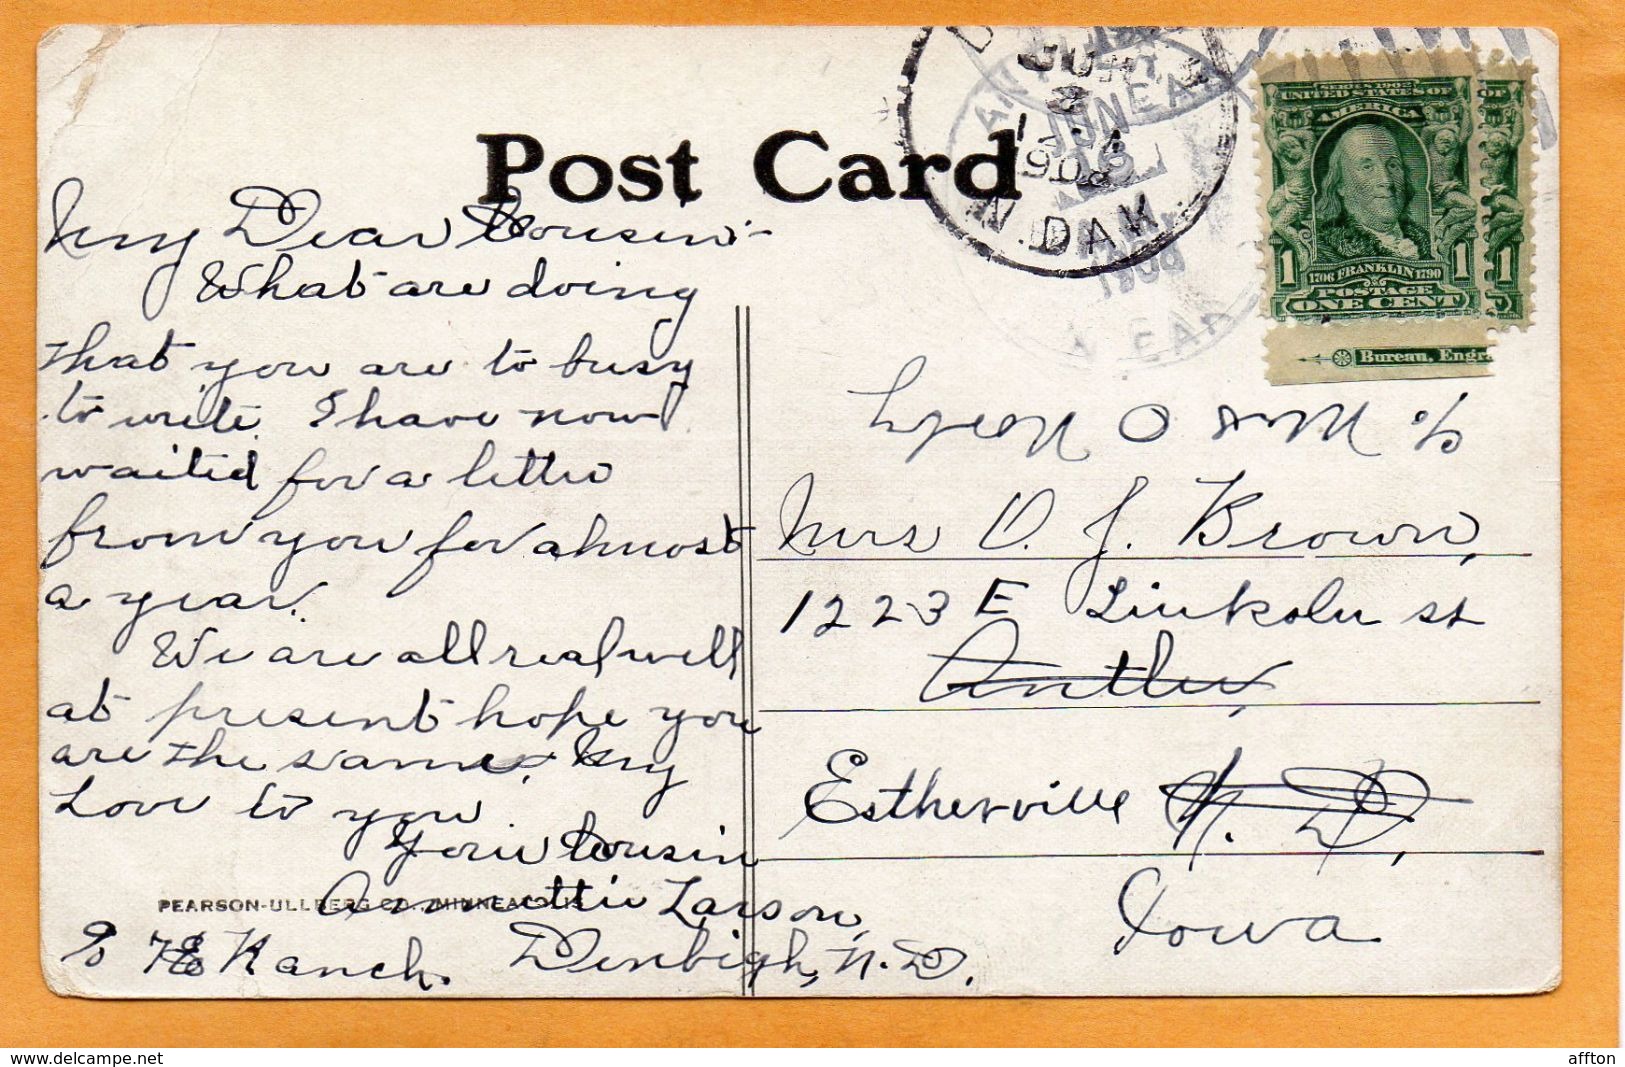 Post Card
My Dear Cousin:-
What are doing
that you are to busy
to write. I have now
waited for a letter
from you for almost
a year.
We are all real well
at present hope you
are the same. My
Love to you.
Your Cousin
Annettie Larson,
% 7 Ranch. Denbigh, N.D.
PEARSON-ULLBERG CO., MINNEAPOLIS
JUN
1908
N. DAK.
ANTLER
JUN
16
1908
N. DAK.
SERIES 1902
UNITED STATES OF
AMERICA
1706 FRANKLIN 1790
POSTAGE
1 1 1
ONE CENT
Bureau, Engra
Mrs O. J. Brown,
1223 E Linkoln st
Antler,
Estherville N. D,
Iowa
www.delcampe.net
affton